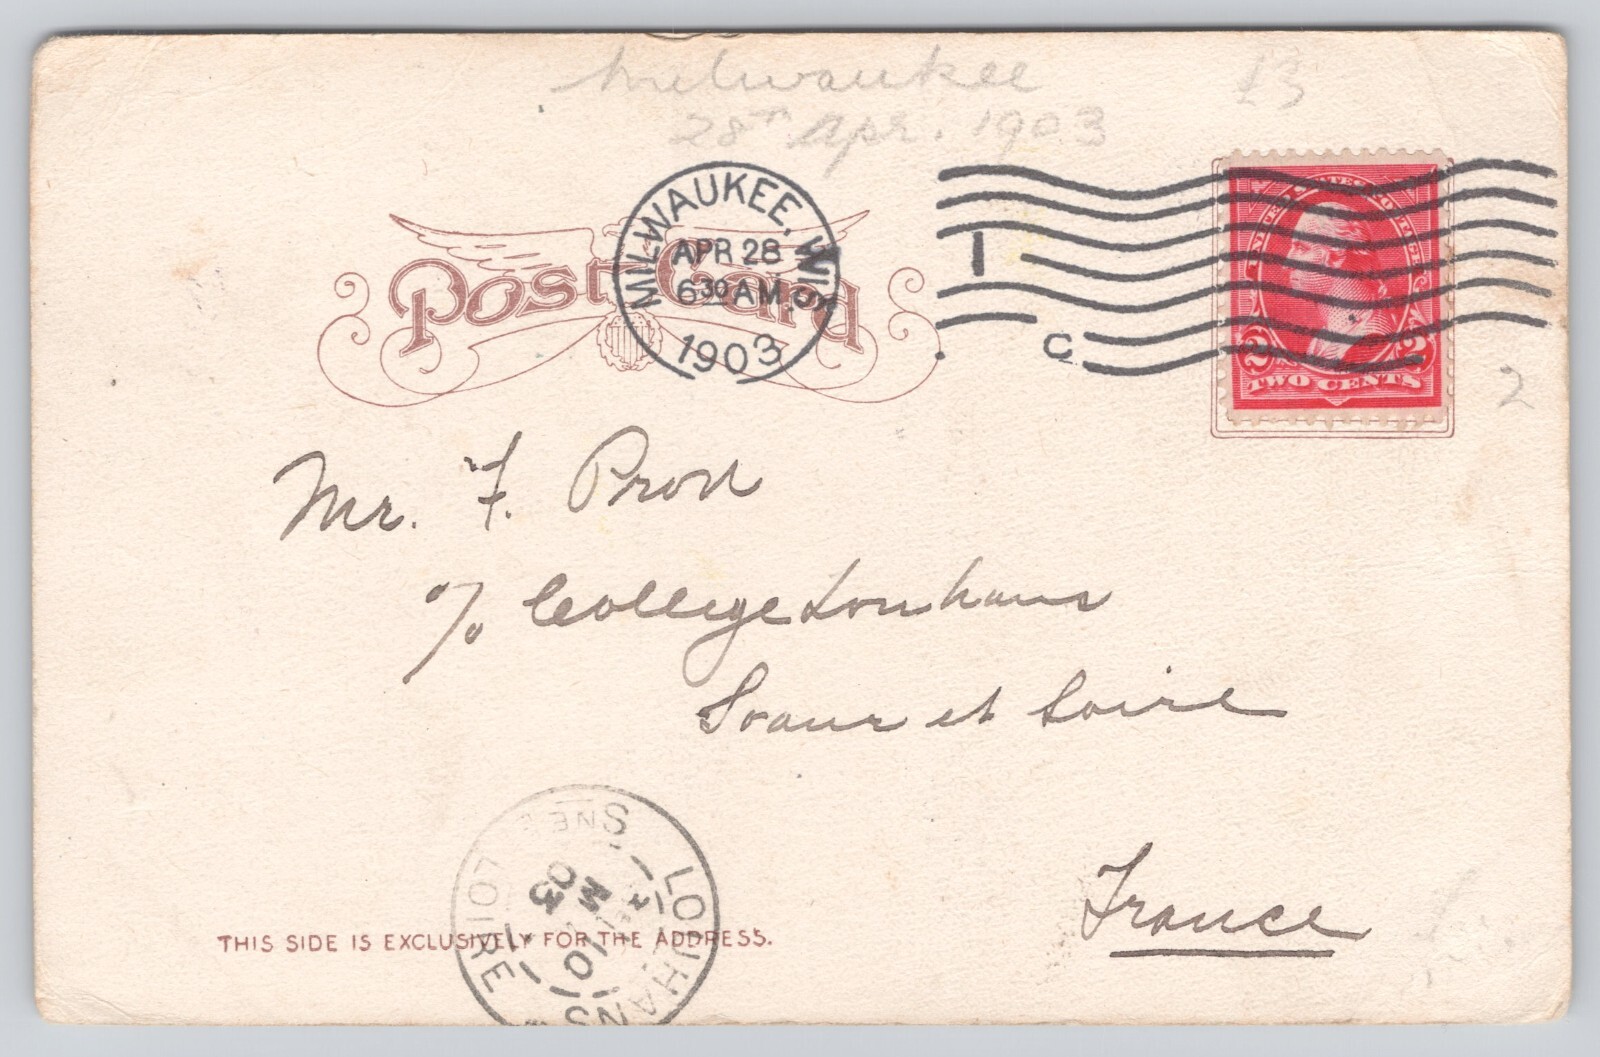 Milwaukee
28th Apr. 1903
£3
MILWAUKEE, WIS.
APR 28
6 30 AM
1903
1
C
Post Card
UNITED STATES POSTAGE
2 2
TWO CENTS
2
Mr. F. Prost
c/o College Louhans
Soaur et Loire
France
LOUHANS
SNE LOIRE
10
M
03
THIS SIDE IS EXCLUSIVELY FOR THE ADDRESS.